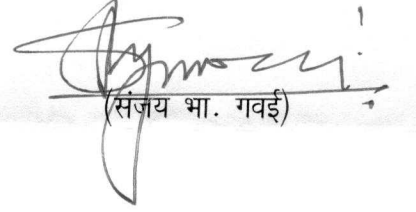 (संजय भा. गवई)